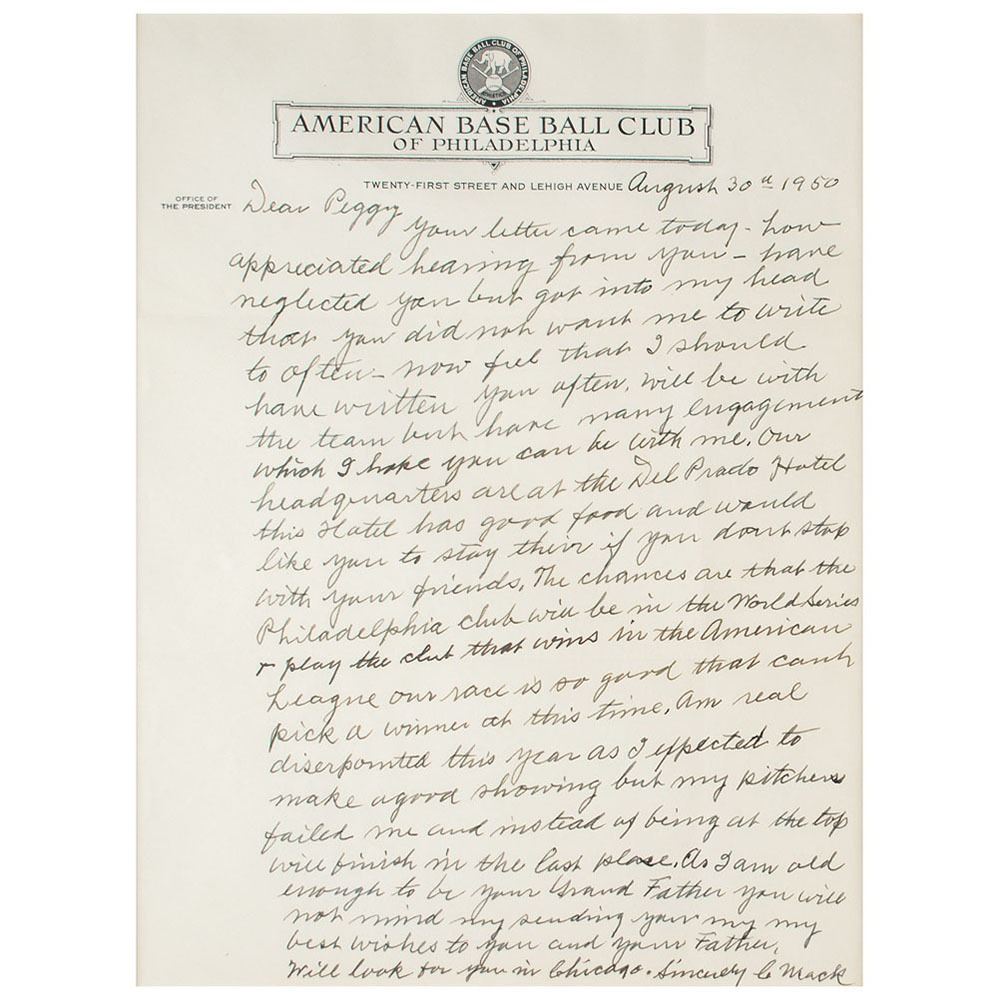 AMERICAN BASE BALL CLUB OF PHILADELPHIA
ATHLETICS
AMERICAN BASE BALL CLUB
OF PHILADELPHIA
TWENTY-FIRST STREET AND LEHIGH AVENUE August 30th 1950
OFFICE OF
THE PRESIDENT
Dear Peggy
Your letter came today - how
appreciated hearing from you - have
neglected you but got into my head
that you did not want me to write
to often - now feel that I should
have written you often. Will be with
the team but have many engagement
which I hope you can be with me. Our
headquarters are at the Del Prado Hotel
this Hotel has good food and would
like you to stay their if you dont stop
with your friends. The chances are that the
Philadelphia club will be in the World Series
& play the club that wins in the American
League our race is so good that cant
pick a winner at this time. Am real
diserpointed this year as I expected to
make a good showing but my pitchers
failed me and instead of being at the top
will finish in the last place. As I am old
enough to be your Grand Father you will
not mind my sending your my my
best wishes to you and your Father.
Will look for you in Chicago. Sincerely C Mack